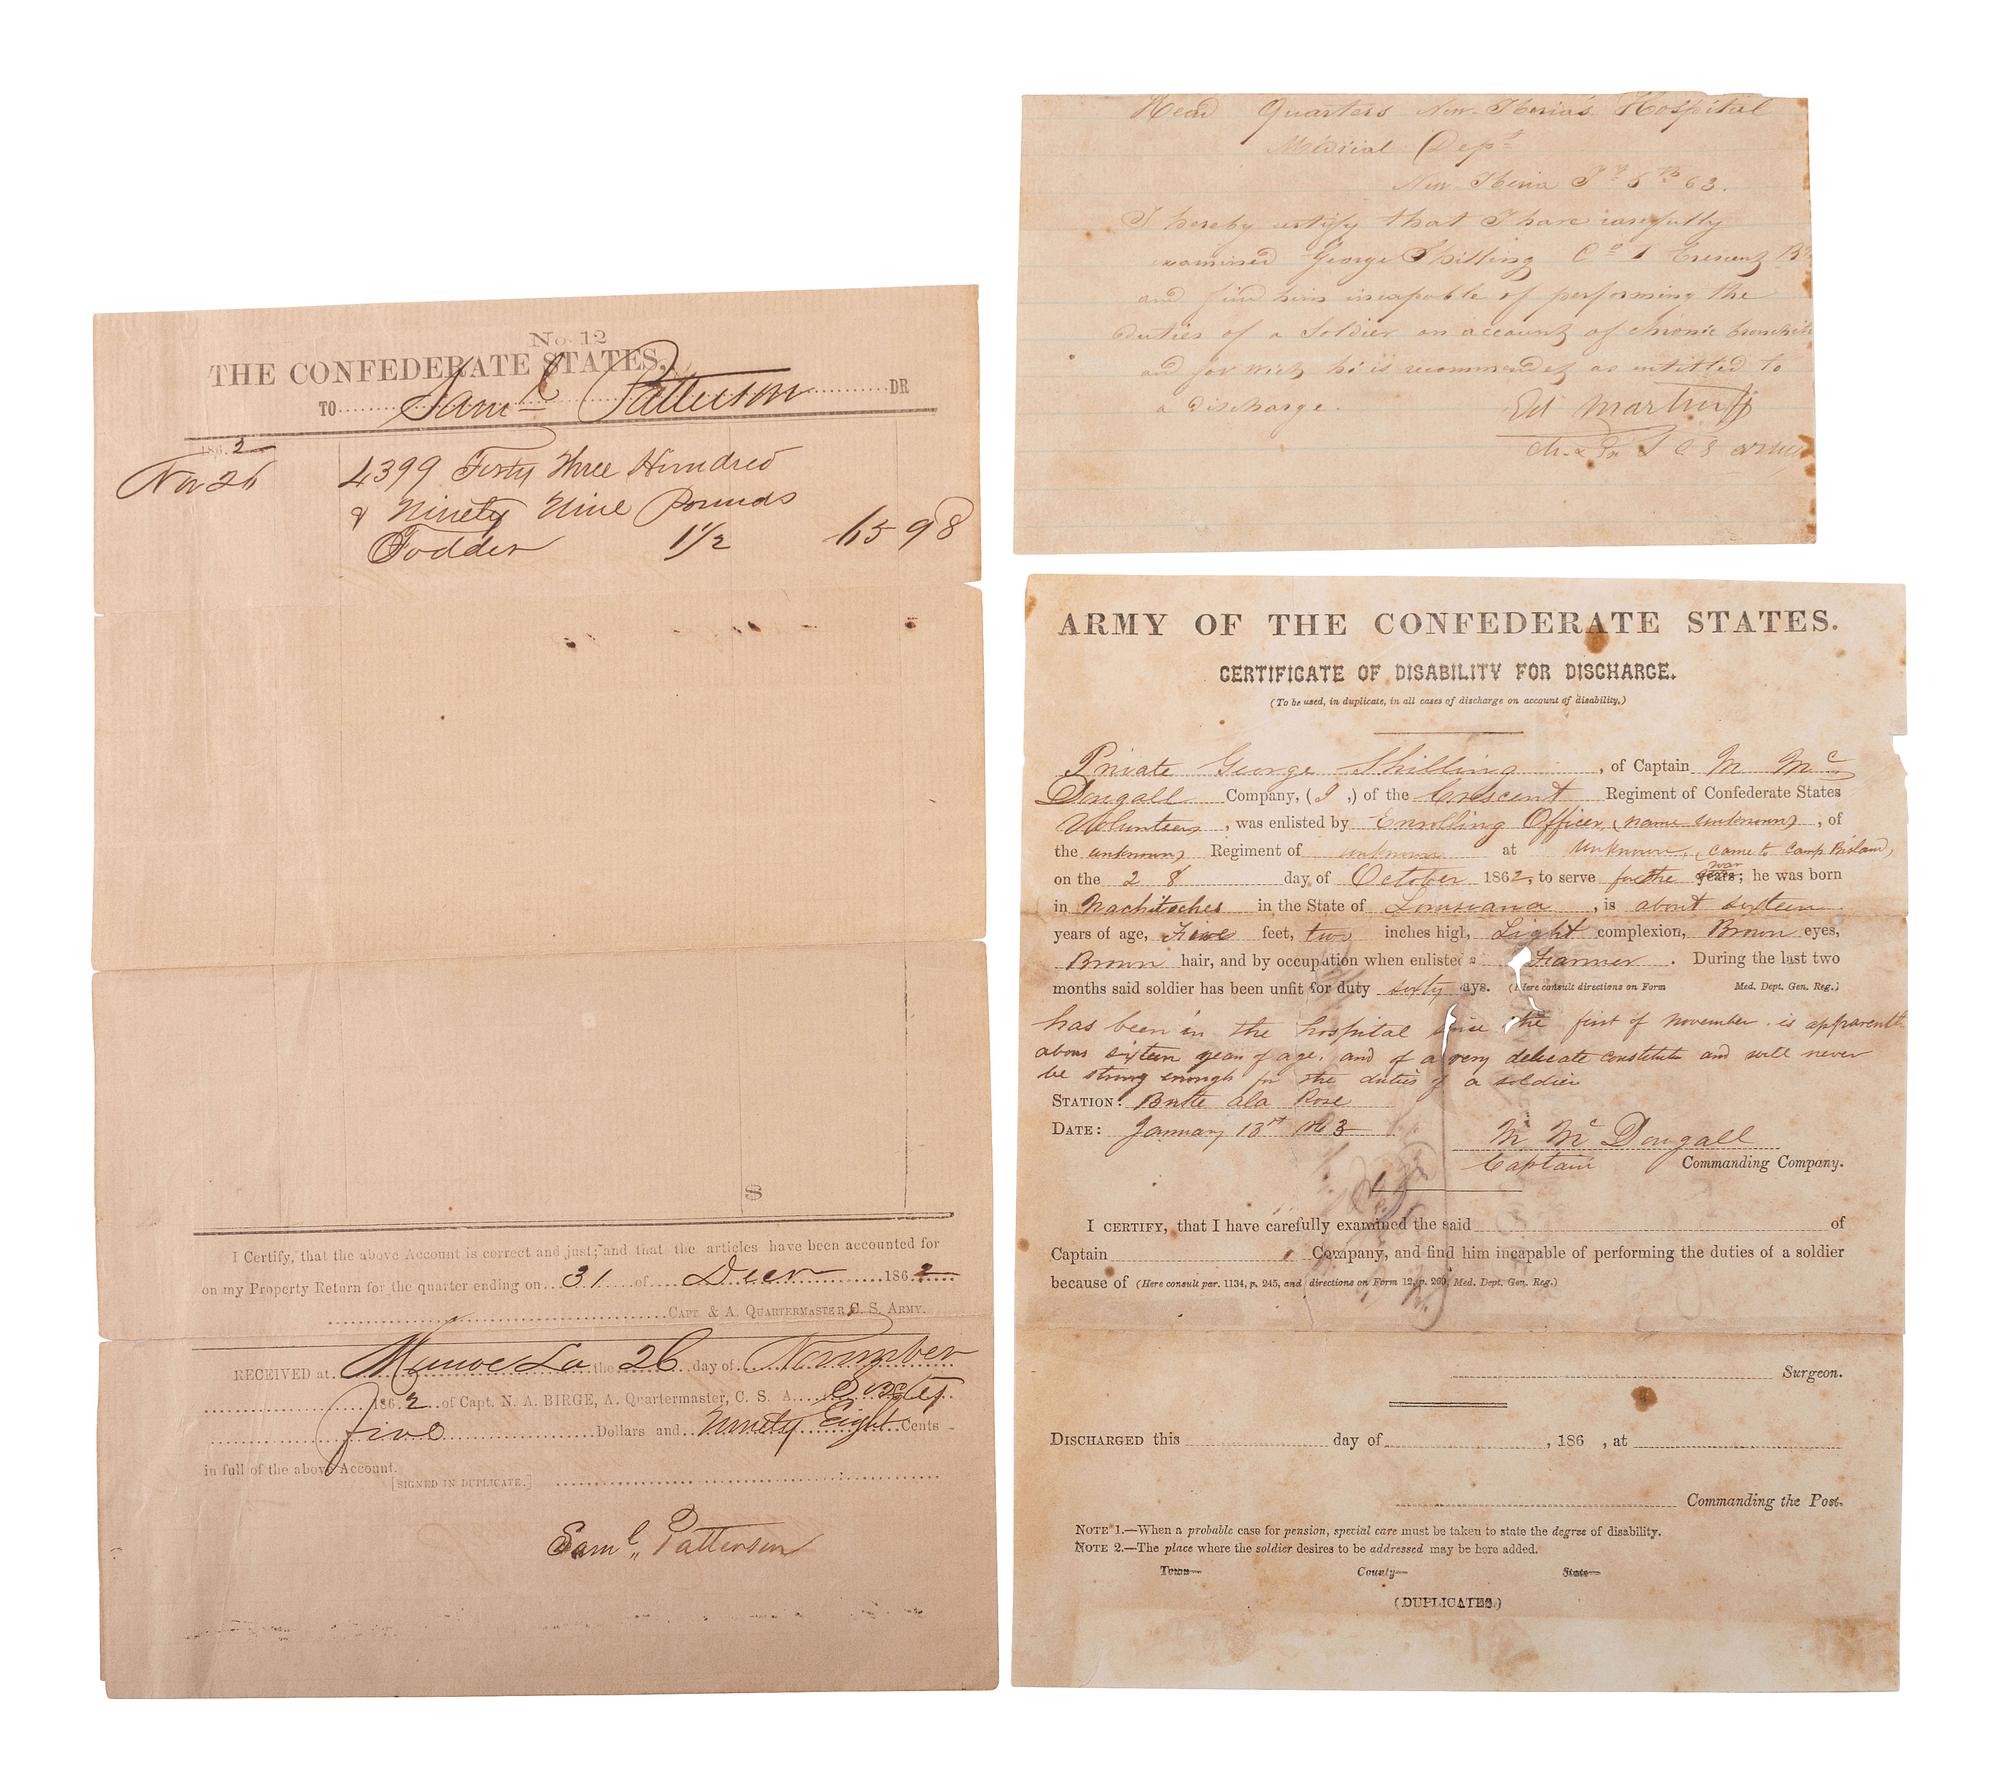 No. 12
THE CONFEDERATE STATES,
TO Saml Patterson DR
1862
Nov 26 4399 Forty Three Hundred
& Ninety Nine Pounds
Fodder 1 1/2 65 98
$
I Certify, that the above Account is correct and just; and that the articles have been accounted for
on my Property Return for the quarter ending on 31 of Decr 1862
CAPT & A. QUARTERMASTER, C. S. ARMY.
RECEIVED at Munroe La the 26 day of November
1862 of Capt. N. A. BIRGE, A. Quartermaster, C. S. A. Sixty
five Dollars and Ninety Eight Cents
in full of the above Account.
[SIGNED IN DUPLICATE.]
Saml. Patterson
Head Quarters New Iberia's Hospital
Medical Dept
New Iberia 5th 63.
I hereby certify that I have carefully
examined George Shilling Co I Crescent
and find him incapable of performing the
duties of a Soldier on account of chronic bronchitis
and for wich he is recommended as entitled to
a discharge.
Ed
C S army
ARMY OF THE CONFEDERATE STATES.
CERTIFICATE OF DISABILITY FOR DISCHARGE.
(To be used, in duplicate, in all cases of discharge on account of disability.)
Private George Shilling, of Captain M Mc
Dougall Company, (I,) of the Crescent Regiment of Confederate States
Volunteers, was enlisted by Enrolling Officer, (name unknown), of
the unknown, Regiment of unknown at unknown, (came to Camp Bisland,
on the 28 day of October 1862, to serve for the years; war he was born
in Nachitoches in the State of Louisiana, is about sixteen
years of age, Five feet, two inches high, Light complexion, Brown eyes,
Brown hair, and by occupation when enlisted a Farmer. During the last two
months said soldier has been unfit for duty sixty days. (Here consult directions on Form Med. Dept. Gen. Reg.)
has been in the hospital since the first of November. is apparently
about sixteen year of age, and of a very delicate constitute and will never
be strong enough for the duties of a soldier
STATION: Butte ala Rose
DATE: January 13rt 1863
M Mc Dougall
Captain Commanding Company.
I CERTIFY, that I have carefully examined the said of
Captain Company, and find him incapable of performing the duties of a soldier
because of (Here consult par. 1134, p. 245, and directions on Form 12, p. 269, Med. Dept. Gen. Reg.)
Surgeon.
DISCHARGED this day of , 186 , at
Commanding the Post.
NOTE 1.—When a probable case for pension, special care must be taken to state the degree of disability.
NOTE 2.—The place where the soldier desires to be addressed may be here added.
Town— County— State—
(DUPLICATES.)